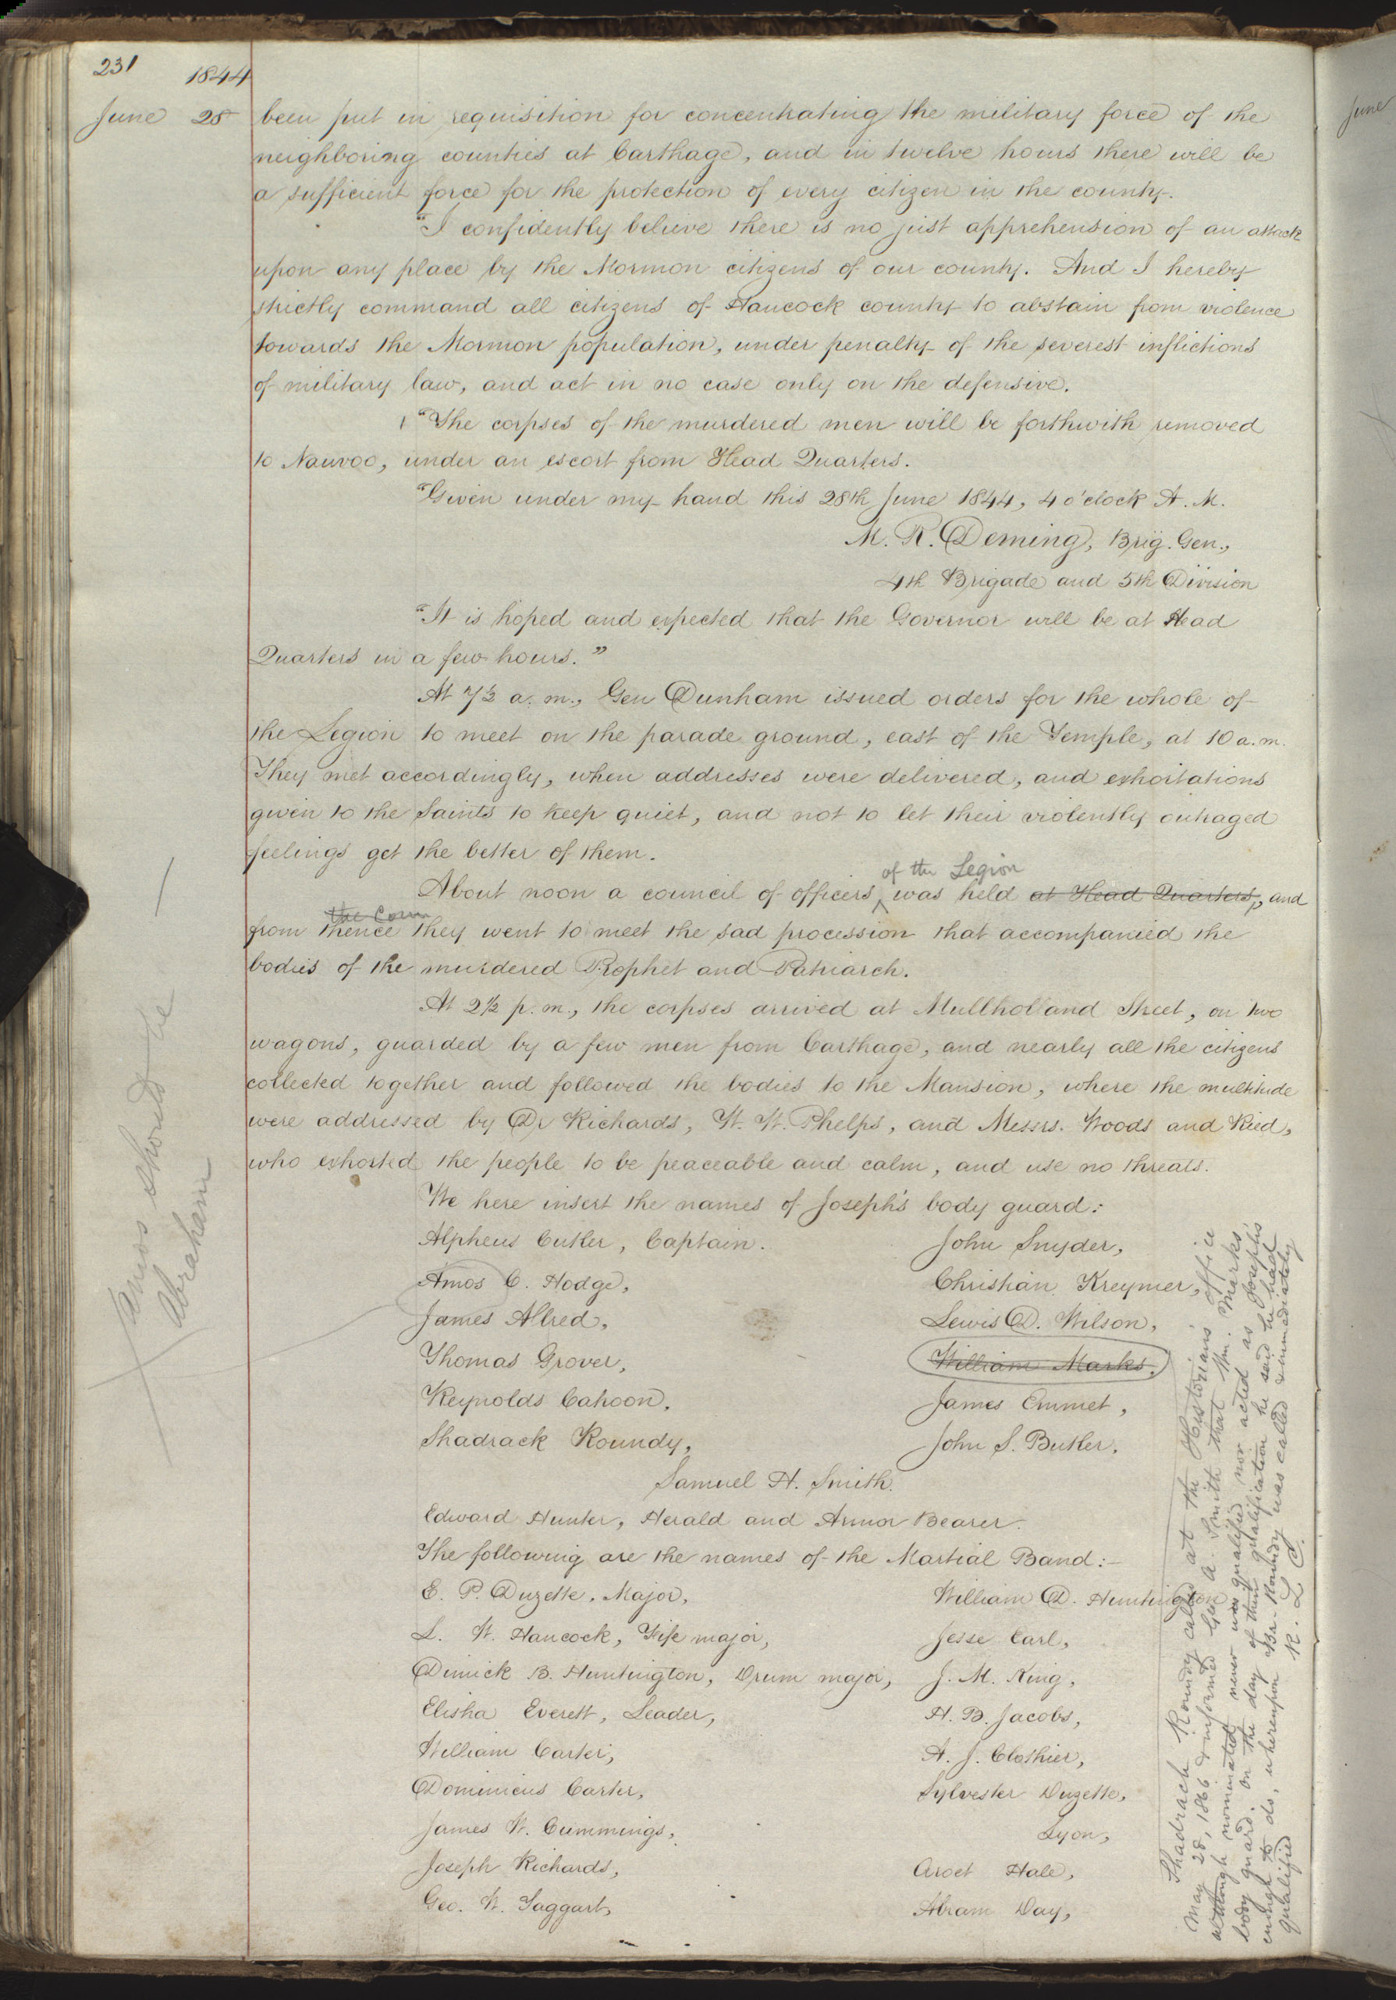 231
1844
June 28
been put in requisition for concentrating the military force of the
neighboring counties at Carthage, and in twelve hours there will be
a sufficient force for the protection of every citizen in the county.
"I confidently believe there is no just apprehension of an attack
upon any place by the Mormon citizens of our county. And I hereby
strictly command all citizens of Hancock county to abstain from violence
towards the Mormon population, under penalty of the severest inflictions
of military law, and act in no case only on the defensive.
"The corpses of the murdered men will be forthwith removed
to Nauvoo, under an escort from Head Quarters.
"Given under my hand this 28th June 1844, 4 o'clock A. M.
M. R. Deming, Brig. Gen.,
4th Brigade and 5th Division
"It is hoped and expected that the Governor will be at Head
Quarters in a few hours."
At 7½ a. m., Gen Dunham issued orders for the whole of
the Legion to meet on the parade ground, east of the Temple, at 10 a.m.
They met accordingly, when addresses were delivered, and exhortations
given to the Saints to keep quiet, and not to let their violently outraged
feelings get the better of them.
of the Legion
About noon a council of officers was held at Head Quarters, and
the Coun
from thence they went to meet the sad procession that accompanied the
bodies of the murdered Prophet and Patriarch.
At 2½ p. m., the corpses arrived at Mullholland Street, on two
wagons, guarded by a few men from Carthage, and nearly all the citizens
collected together and followed the bodies to the Mansion, where the multitude
were addressed by Dr Richards, W. W. Phelps, and Messrs. Woods and Ried,
who exhorted the people to be peaceable and calm, and use no threats.
We here insert the names of Joseph's body guard:
Alpheus Cutler, Captain.
John Snyder,
Amos C. Hodge,
Christian Kreymer,
James Allred,
Lewis D. Wilson,
Thomas Grover,
William Marks,
Reynolds Cahoon,
James Emmet,
Shadrack Roundy,
John S. Butler.
Samuel H. Smith.
Edward Hunter, Herald and Armor Bearer.
The following are the names of the Martial Band:-
E. P. Duzette, Major,
William D. Huntington
L. W. Hancock, Fife major,
Jesse Earl,
Dimick B. Huntington, Drum major,
J. M. King,
Elisha Everett, Leader,
H. B. Jacobs,
William Carter,
A. J. Clothier,
Dominicus Carter,
Sylvester Duzette,
James W. Cummings,
Lyon,
Joseph Richards,
Aroet Hale,
Geo. W. Taggart,
Abram Day,
Amos should be
Abraham
Shadrach Roundy called at the Historians office
May 28, 1866 & informed Geo A. Smith that Wm. Marks,
although nominated never was qualified nor acted as Joseph's
body guard. On the day of their qualification he said he had
enough to do, whereupon Br. Roundy was called & immediately
qualified R. L. C.
June